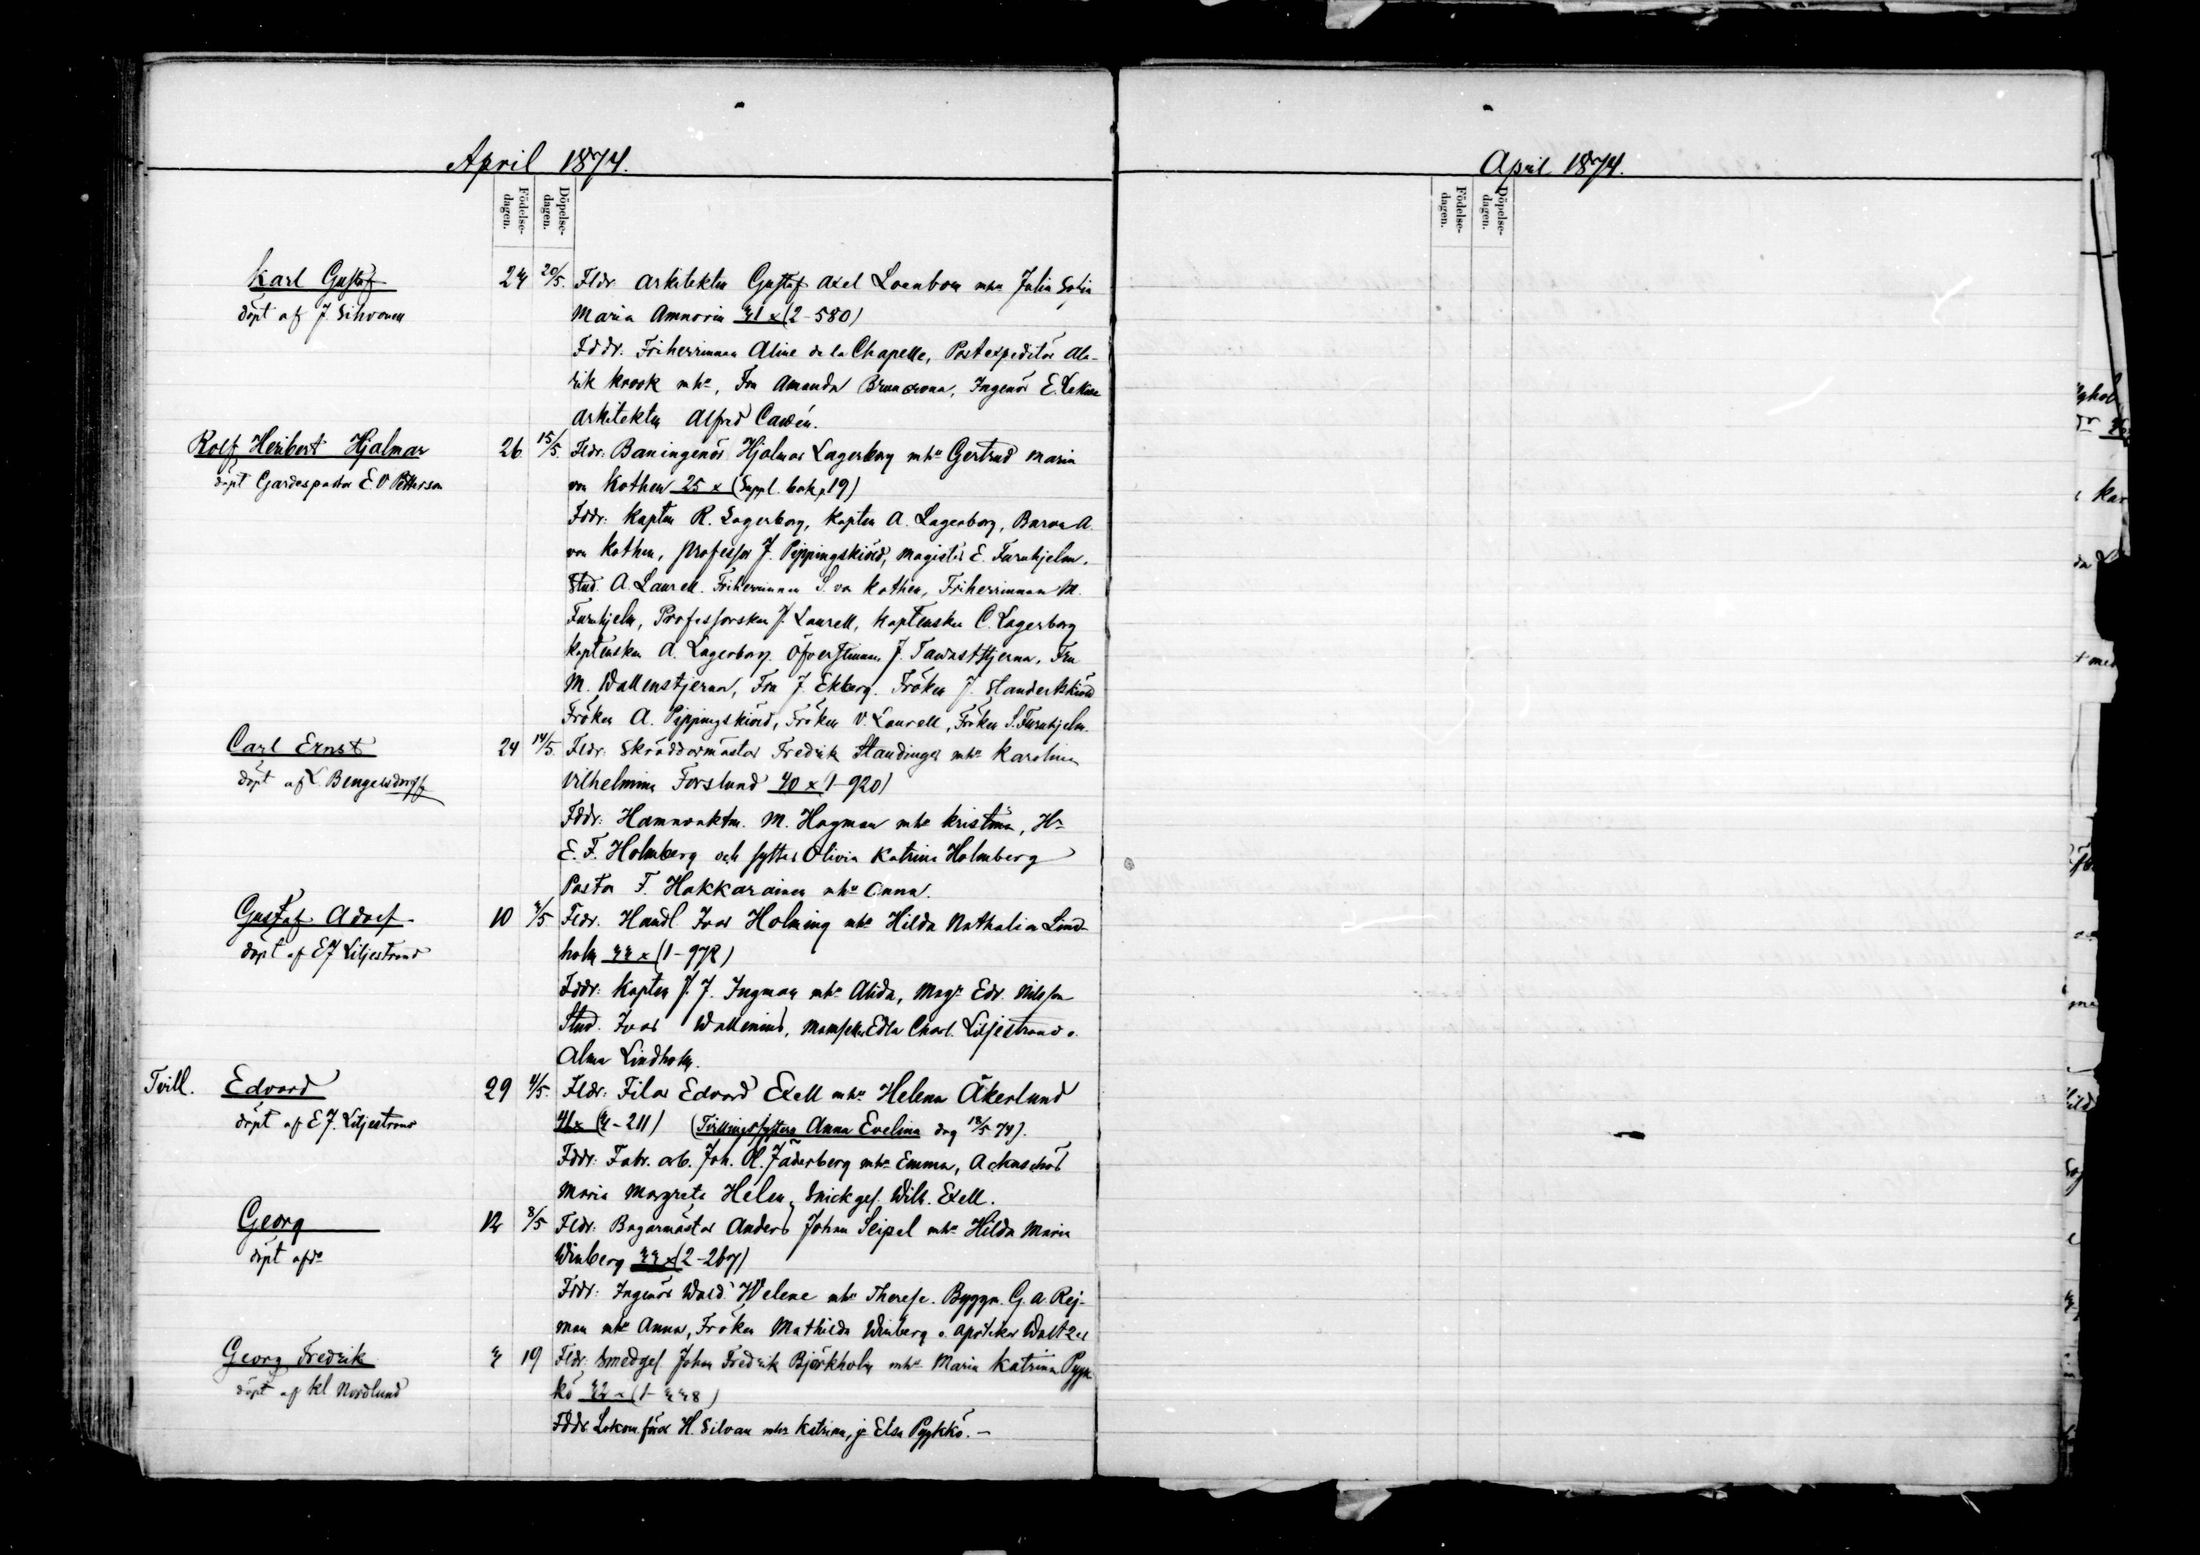 April 1874.
Födelse-
dagen.
Döpelse-
dagen.
Karl Gustaf
döpt af J. Sihvonen
24 20/5. Fldr. Arkitekten Gustaf Axel Loenbom mhu Julia Sofia
Maria Amnorin 31 x (2-580)
Fddr. Friherrinnan Aline de la Chapelle, Postexpeditör Ala-
rik Krook mhu, Fru Amanda Bruncrona, Ingenör E.
Arkitekten Alfred Cawén.
Rolf Heribert Hjalmar
döpt Gardespastor E. V. Petterson
26 15/5. Fldr: Baningenör Hjalmar Lagerborg mhu Gertrud Maria
von Kothen 25 x (Suppl. bok p 19)
Fddr: Kapten R. Lagerborg, Kapten A. Lagerborg, Baron A.
von Kothen, Professor J. Pippingsköld, Magister E. Furuhjelm.
Stud. A. Laurell. Friherrinnan S. von Kothen, Friherrinnan M.
Furuhjelm, Professorskan J. Laurell, Kaptenskan C. Lagerborg
Kaptenskan A. Lagerborg. Öfverstinnan J. Tawaststjerna, Fru
M. Wallenstjerna, Fru J. Ekberg. Fröken J.
Fröken A. Pippingsköld, Fröken V. Laurell, Fröken S. Furuhjelm.
Carl Ernst
döpt af L. Bengelsdorff
24 14/5. Fldr: Skräddarmästar Fredrik Staudinger mhu Karolina
Vilhelmina Forslund 40 x (1-920)
Fddr: Hamnvaktm. M. Hagman mhu Kristina, Hr
E. F. Holmberg och syster Olivia Katrina Holmberg
Pastor F. Hakkarainen mhu Anna.
Gustaf Adolf
döpt af E J Liljestrand
10 4/5 Fldr. Handl. Ivar Holming mhu Hilda Nathalia Lind-
holm 33 x (1-972)
Fddr: Kapten J. J. Ingman mhu Alida, Magr Edv. Nilsson
Stud. Ivar Wallenius, Mamseller Edla Charl. Liljestrand o.
Alma Lindholm.
Tvill. Edvard
döpt af E J. Liljestrand
29 4/5. Fldr: Filar Edvard Exell mhu Helena Åkerlund
41 x (4-211) (Tvillingssystern Anna Evelina dog 12/5 74).
Fddr: Fabr. arb. Joh. H. Jäderberg mhu Emma,
Maria Margreta Helen, Snickges. Wilh. Exell.
Georg
döpt af do
12 8/5 Fldr: Bagarmästar Anders Johan Seipel mhu Hilda Maria
Winberg 33 x (2-267)
Fddr: Ingenör Wald. Welene mhu Therese. Byggm. G. A. Rej-
man mhu Anna, Fröken Mathilda Winberg o. Apotekar Waltzer
Georg Fredrik
döpt af Kl Nordlund
4 19 Fldr: Smedges. Johan Fredrik Björkholm mhu Maria Katrina Pyyk-
kö 32 x (1-448)
Fddr Lokom. förar H. Silvan mhu Katrina, j. Elsa Pyykkö. –
April 1874.
Födelse-
dagen.
Döpelse-
dagen.